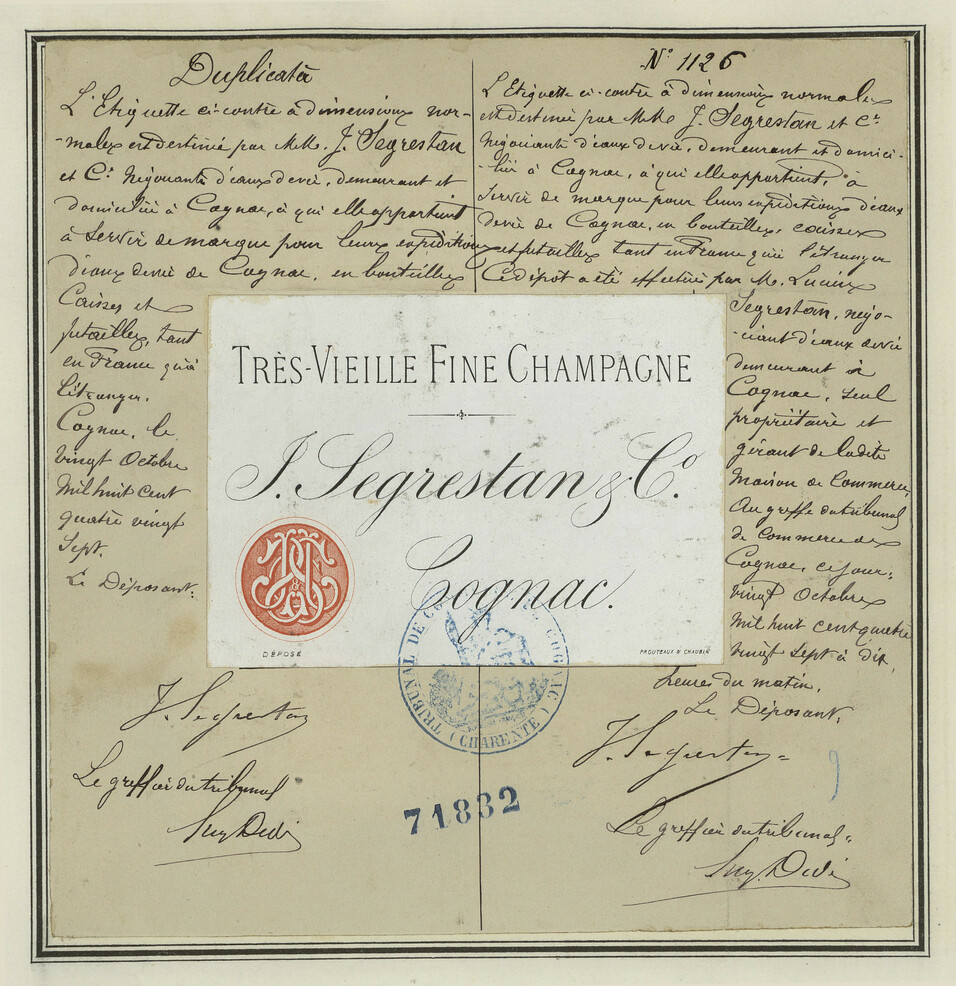 Duplicata
L'Etiquette ci-contre à dimensions nor-
-males est destinée par MM. J. Segrestan
et Cie Négociants d'eaux de vie, demeurant et
domiciliés à Cognac, à qui elle appartient
à servir de marque pour leurs expéditions
d'eaux de vie de Cognac, en bouteilles
Caisses et
futailles, tant
en France qu'à
l'étranger.
Cognac, le
vingt Octobre
mil huit cent
quatre vingt
sept.
Le Déposant:
J. Segrestan
Le greffier du tribunal
N° 1126
L'Etiquette ci-contre à dimensions normales
est destinée par MM. J. Segrestan et Cie
Négociants d'eaux de vie, demeurant et domici-
-liés à Cognac, à qui elle appartient, à
servir de marque pour leurs expéditions d'eaux
de vie de Cognac, en bouteilles, caisses
et futailles tant en France qu'à l'étranger
Ce dépôt a été effectué par M. Lucien
Segrestan, négo-
-ciant d'eaux de vie
demeurant à
Cognac, seul
propriétaire et
gérant de ladite
Maison de Commerce,
Au greffe du tribunal
de Commerce de
Cognac, ce jour:
vingt Octobre
mil huit cent quatre
vingt sept à dix
heures du matin.
Le Déposant,
J. Segrestan
Le greffier du tribunal
TRÈS-VIEILLE FINE CHAMPAGNE
J. Segrestan & Co.
Cognac.
DÉPOSÉ
PROUTEAUX & CHAUBIN
TRIBUNAL DE CO COGNAC (CHARENTE)
71832